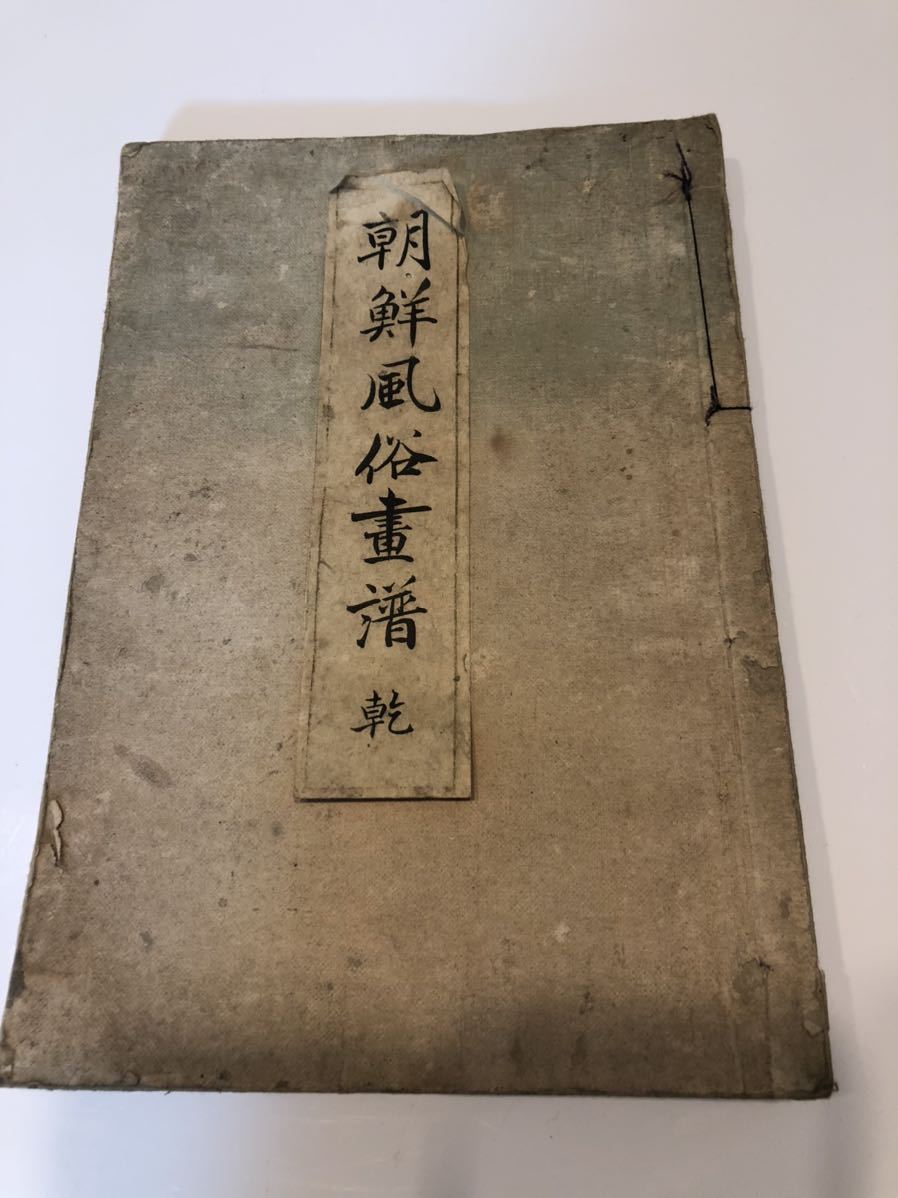 朝鮮風俗畫譜
乾